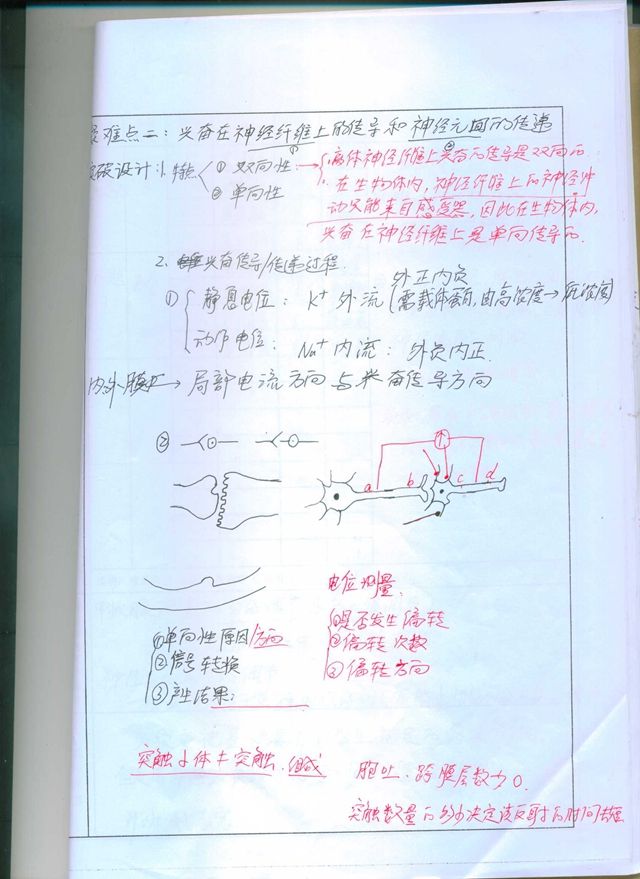 疑难点二：兴奋在神经纤维上的传导和神经元间的传递
突破设计：1.特点 ①双向性：①离体神经纤维上兴奋的传导是双向的
②单向性 ②在生物体内，神经纤维上的神经冲
动只能来自感受器，因此在生物体内，
兴奋在神经纤维上是单向传导的.
2. 兴奋传导/传递过程
外正内负
① 静息电位：K⁺外流 需载体蛋白，由高浓度→低浓度
动作电位：Na⁺内流：外负内正
内外膜 → 局部电流方向与兴奋传导方向
②
a b c d
电位测量.
①单向性原因/方向 ①是否发生偏转
②信号转换 ②偏转次数
③产生结果： ③偏转方向
突触小体≠突触.组成 胞吐.跨膜层数为0.
突触数量的多少决定该反射的时间长短